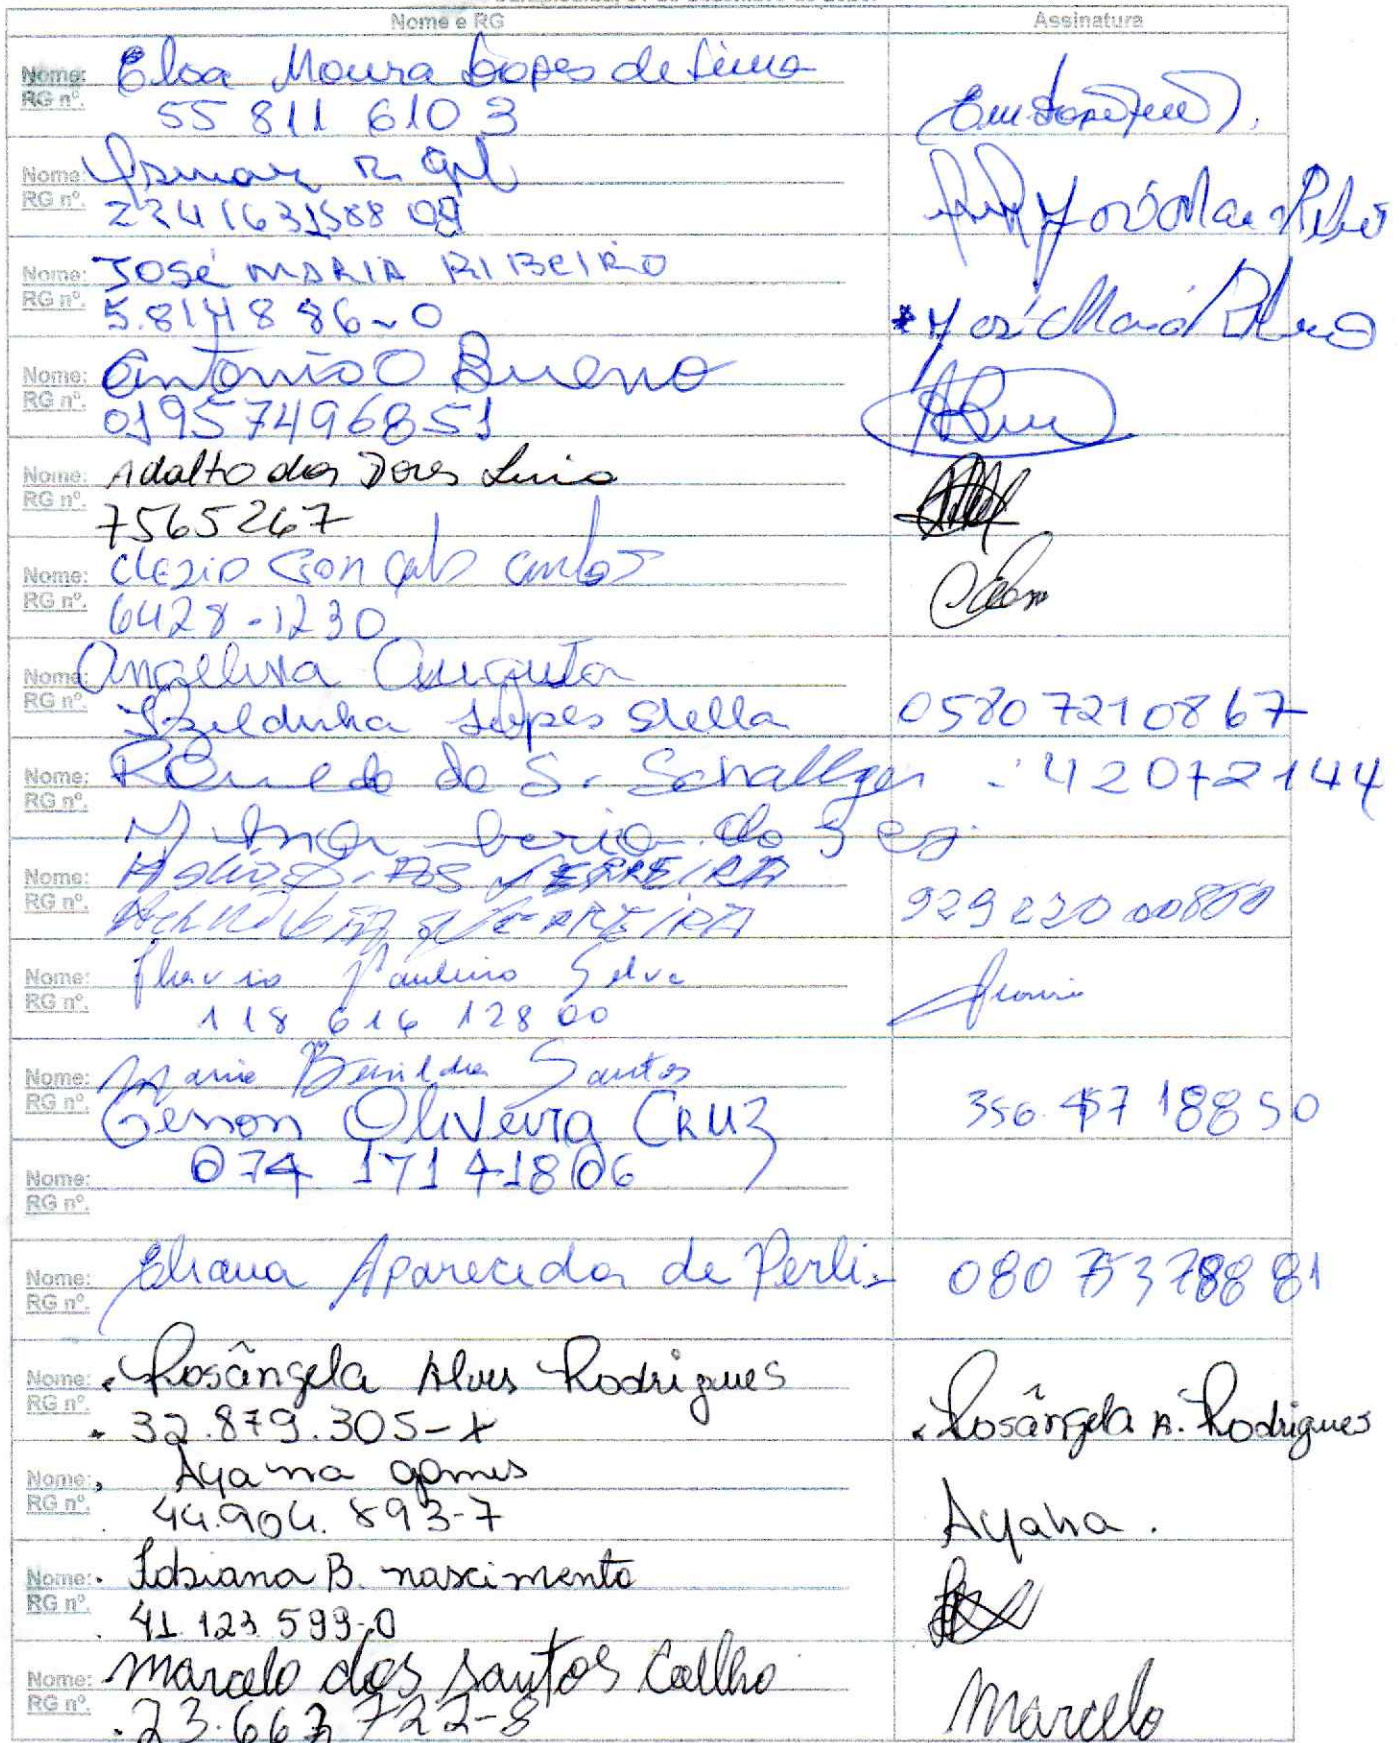 Nome e RG Assinatura
Nome: Elsa Moura Lopes de Lima
RG nº. 55 811 610 3
Nome: R. Gil
RG nº. 2241631588 08
Nome: JOSÉ MARIA RIBEIRO
RG nº. 5.814886-0 José Maria Ribeiro
Nome: Antonio O Bueno
RG nº. 01957496851
Nome: Adalto das Dores
RG nº. 7565267
Nome: Clezio Gonçalo Carlos
RG nº. 6428-1230
Nome: Angelina Augusta
RG nº. Izildinha Lopes Stella 0580 7210867
Nome: de S. Schallger : 42072144
RG nº.
Nome: FERREIRA
RG nº. FERREIRA 929220 00800
Nome: Flavio Paulino Silva
RG nº. 118 616 128 00
Nome: Maria Benilda Santos
RG nº. Gerson Oliveira CRUZ 356.457 188 50
Nome: 074 171 418 06
RG nº.
Nome: Eliana Aparecida de Perli- 080 753788 81
RG nº.
Nome: Rosângela Alves Rodrigues
RG nº. 32.879.305-X Rosângela A. Rodrigues
Nome: Ayana gomes
RG nº. 44.904.893-7 Ayana.
Nome: Fabiana B. nascimento
RG nº. 41.123 599-0
Nome: Marcelo dos Santos Coelho
RG nº. 23.663 722-8 Marcelo